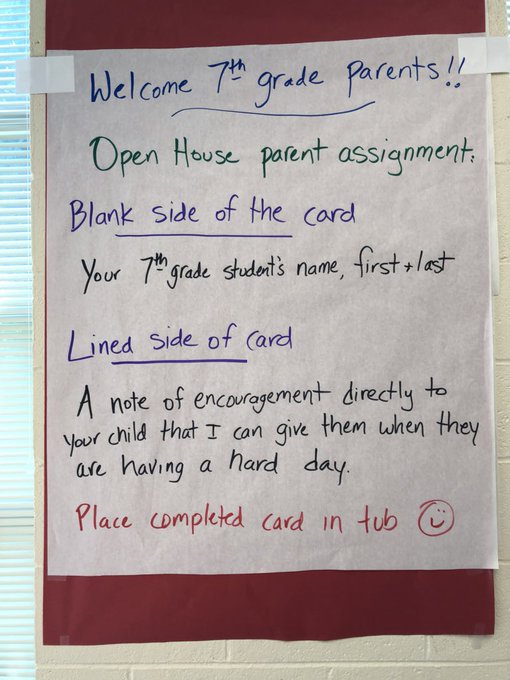 Welcome 7th grade parents!!
Open House parent assignment:
Blank side of the card
Your 7th grade student's name, first + last
Lined side of card
A note of encouragement directly to
your child that I can give them when they
are having a hard day.
Place completed card in tub